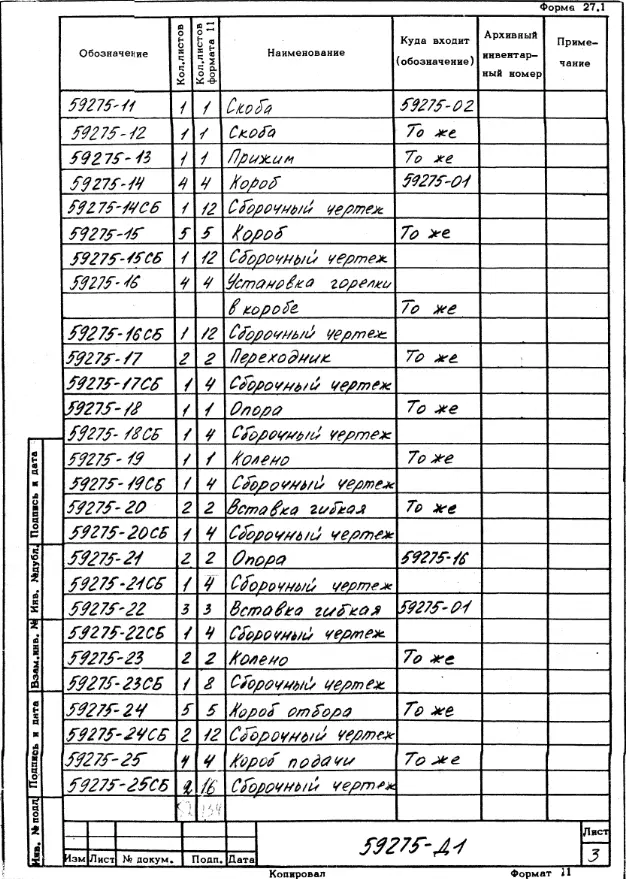 Форма 27.1
Обозначение | Кол.листов | Кол.листов формата 11 | Наименование | Куда входит (обозначение) | Архивный инвентарный номер | Примечание
59275-11 1 1 Скоба 59275-02
59275-12 1 1 Скоба То же
59275-13 1 1 Прижим То же
59275-14 4 4 Короб 59275-01
59275-14СБ 1 12 Сборочный чертеж
59275-15 5 5 Короб То же
59275-15СБ 1 12 Сборочный чертеж
59275-16 4 4 Установка горелки
в коробе То же
59275-16СБ 1 12 Сборочный чертеж
59275-17 2 2 Переходник То же
59275-17СБ 1 4 Сборочный чертеж
59275-18 1 1 Опора То же
59275-18СБ 1 4 Сборочный чертеж
59275-19 1 1 Колено То же
59275-19СБ 1 4 Сборочный чертеж
59275-20 2 2 Вставка гибкая То же
59275-20СБ 1 4 Сборочный чертеж
59275-21 2 2 Опора 59275-16
59275-21СБ 1 4 Сборочный чертеж
59275-22 3 3 Вставка гибкая 59275-01
59275-22СБ 1 4 Сборочный чертеж
59275-23 2 2 Колено То же
59275-23СБ 1 8 Сборочный чертеж
59275-24 5 5 Короб отбора То же
59275-24СБ 2 12 Сборочный чертеж
59275-25 4 4 Короб подачи То же
59275-25СБ 2 16 Сборочный чертеж
134
Инв. № подл. Подпись и дата Взам.инв. № Инв. №дубл. Подпись и дата
Изм Лист № докум. Подп. Дата
59275-Д1
Лист
3
Копировал Формат 11